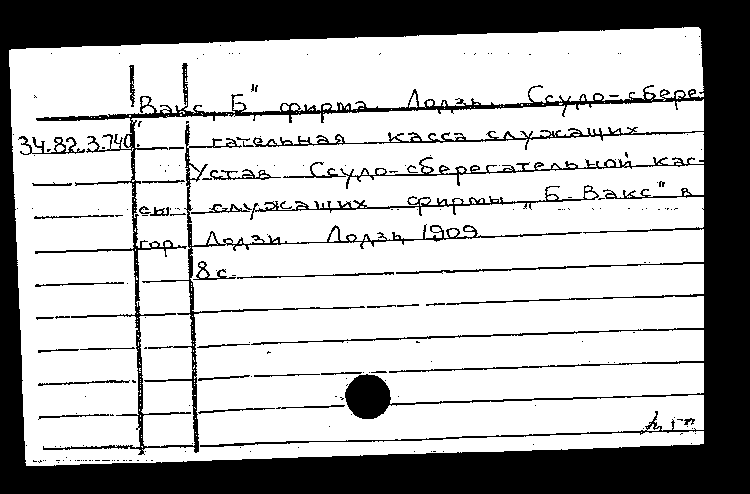 Вакс, Б", фирма. Лодзь. Ссудо-сбере-
34.82.3.740. гательная касса служащих
Устав Ссудо-сберегательной кас-
сы служащих фирмы „Б. Вакс" в
гор. Лодзи. Лодзь, 1909
8 с.